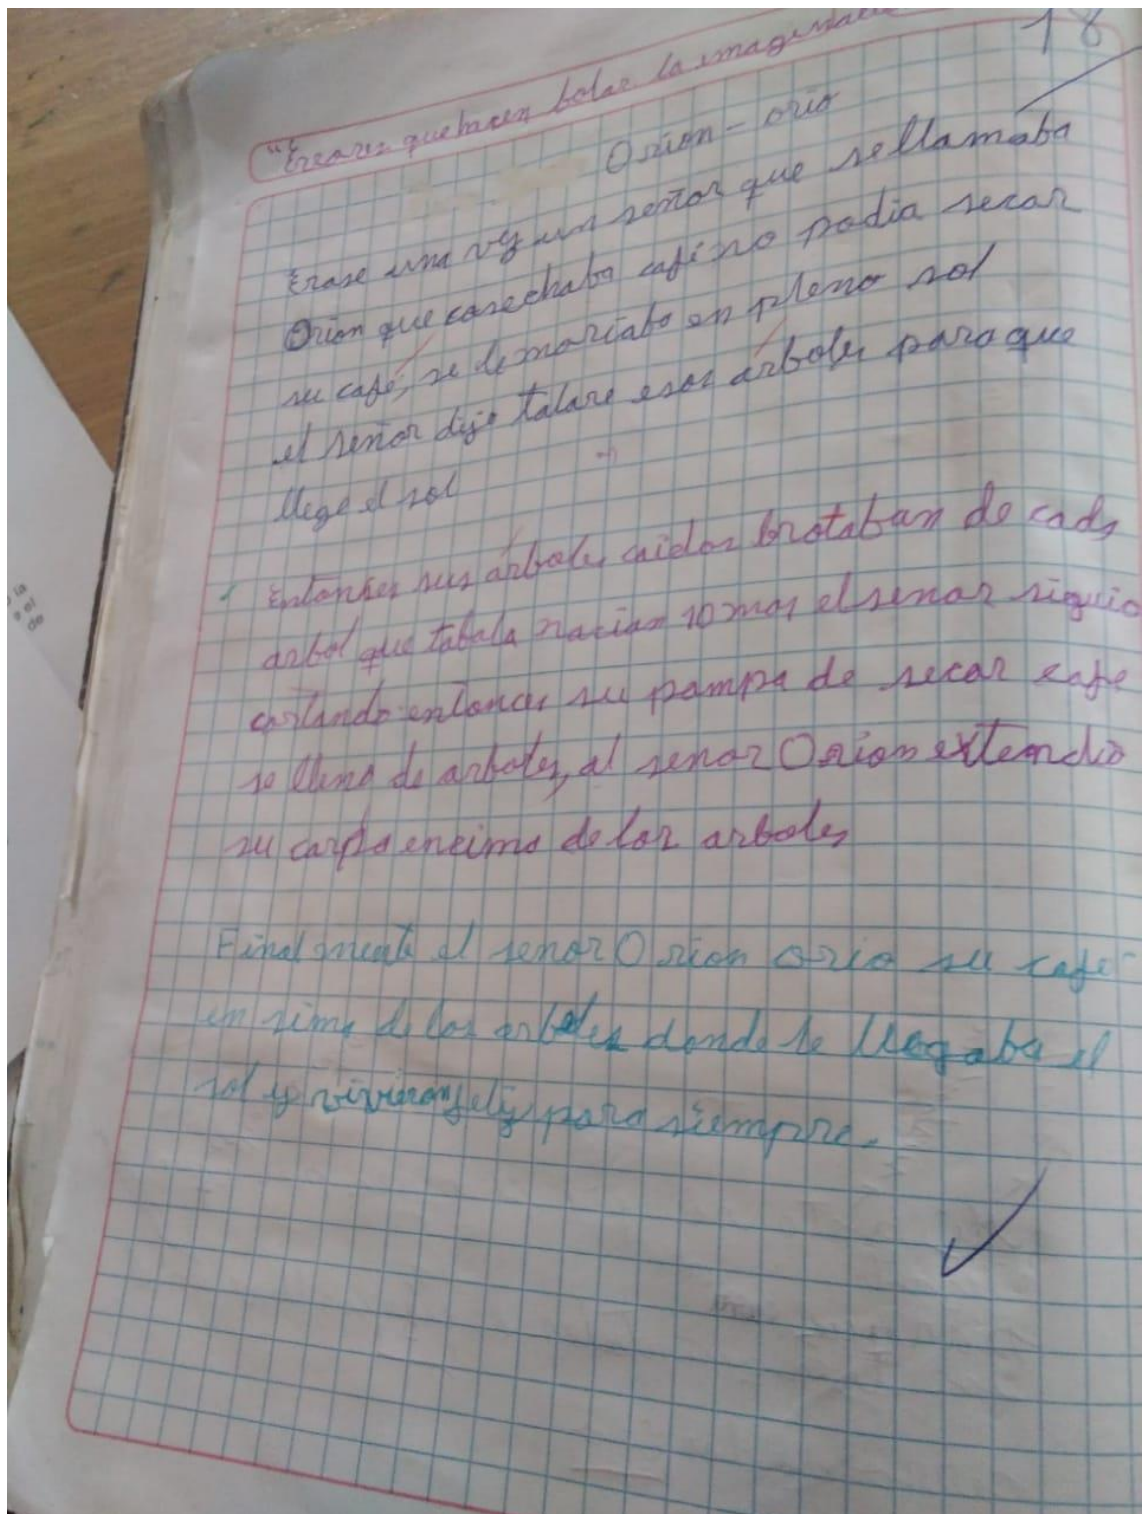 "Errores que hacen bolar la imaginació
18
Orion - orio
Erase una vez un señor que se llamaba
Orion que cosechaba café no podia secar
su café, se demoriaba en pleno sol
el señor dijo talare esos árboles para que
llege el sol
Entonses sus árboles caidos brotaban de cada
arbol que tabala nacian 10 mas el senor siguio
cortando entonces su pampa de secar cafe
se lleno de arboles, al senor Orion extendio
su carpa encima de los arboles
Finalmente el senor Orion orio su café
en sima de los arboles donde le llegaba el
sol y vivieron feliz para siempre.
la
el
de